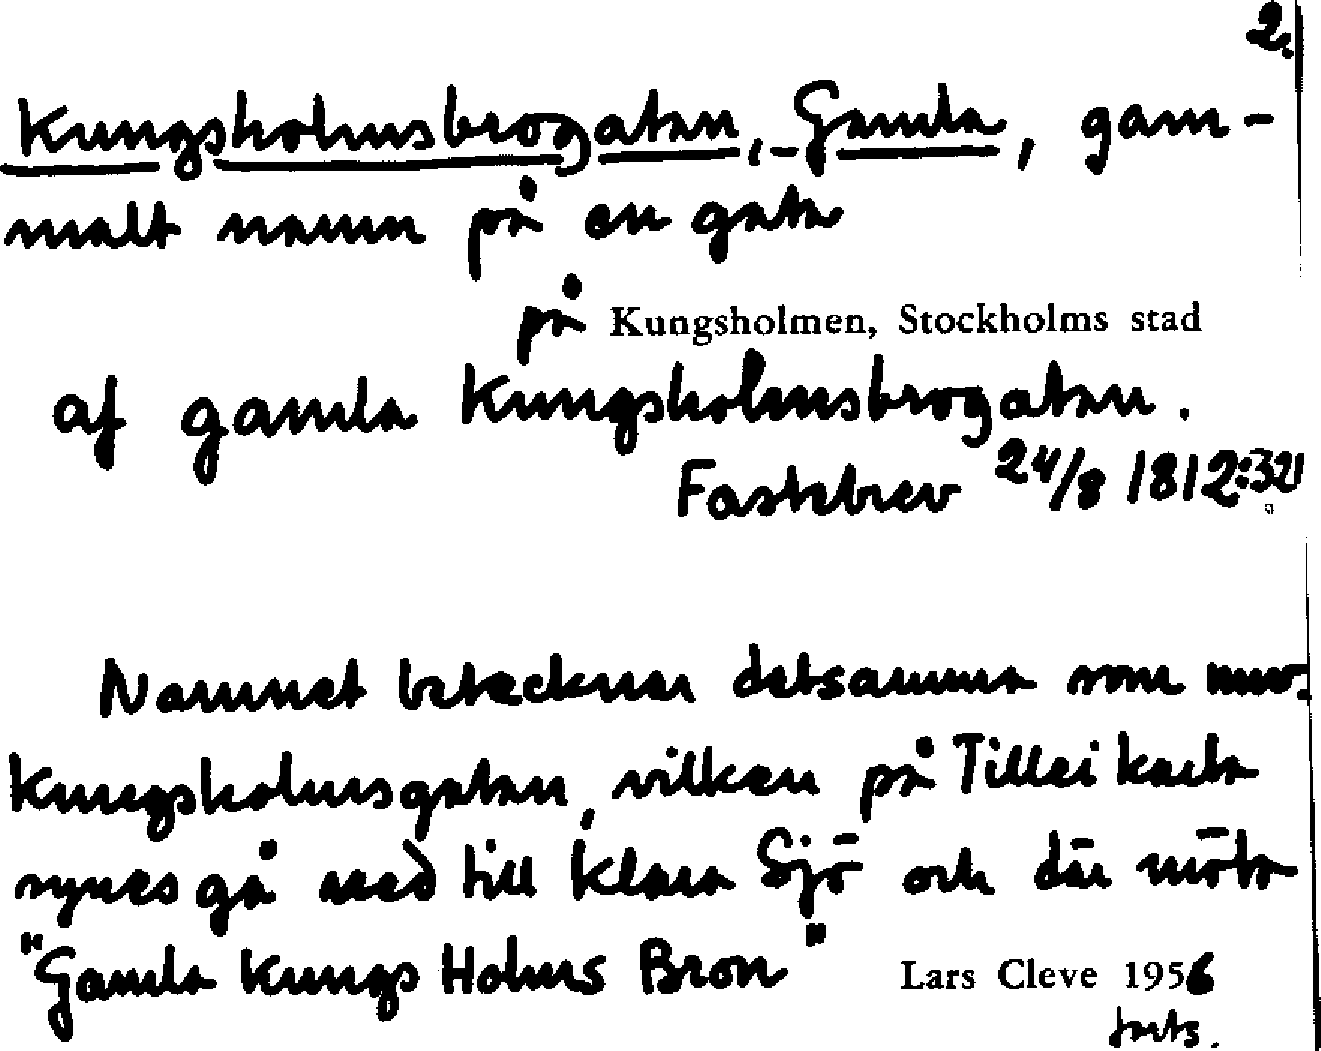 2.
Kungsholmsbrogatan, Gamla, gam-
malt namn på en gata
på Kungsholmen, Stockholms stad
af gamla Kungsholmsbrogatan.
Fastebrev 24/8 1812:32
Namnet betecknar detsamma som nuv.
Kungsholmsgatan, vilken på Tillæi karta
synes gå ned till Klara Sjö och där möta
"Gamla Kungs Holms Bron" Lars Cleve 1956
forts.